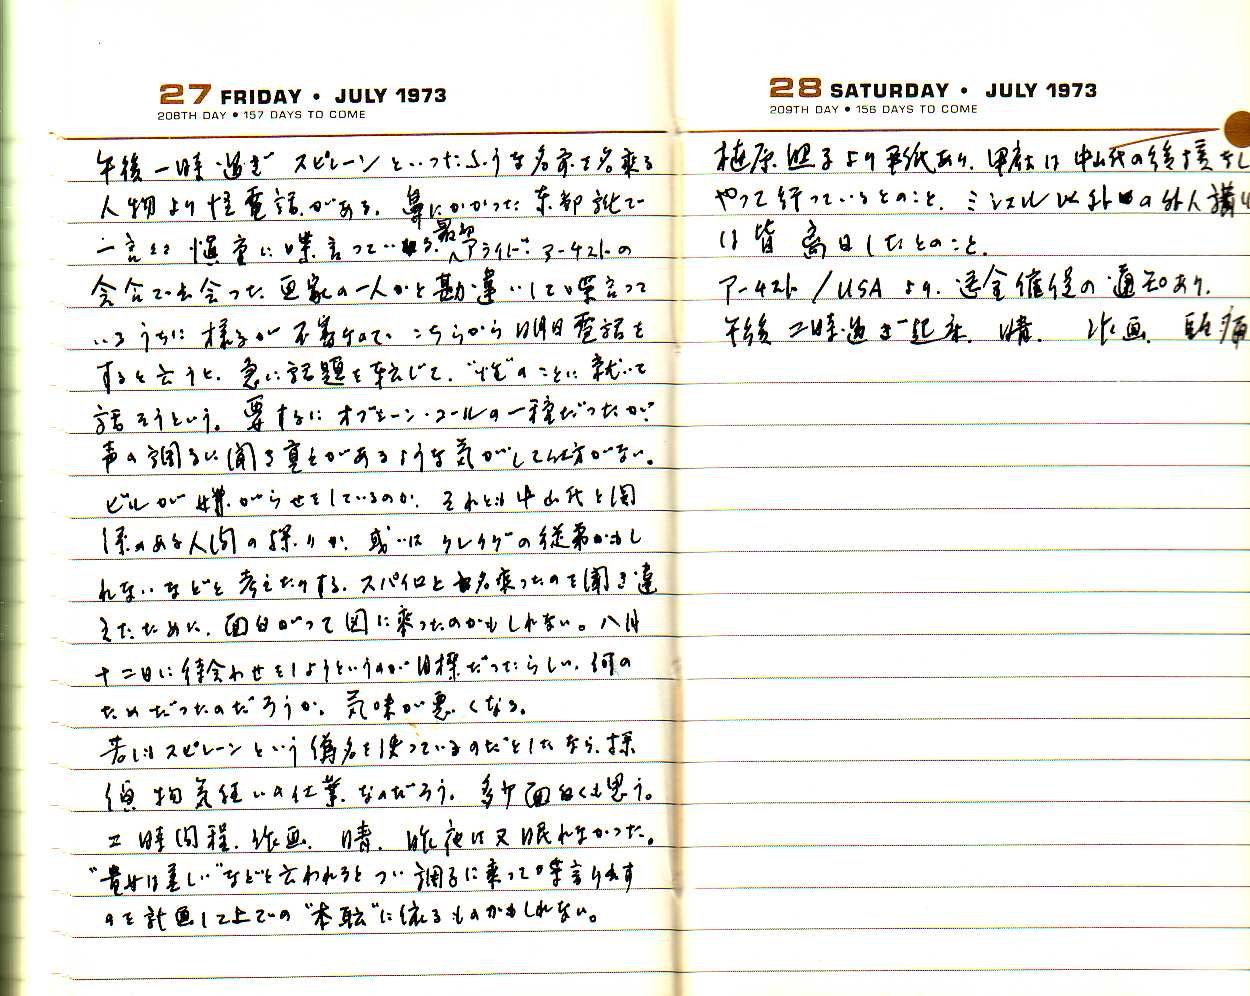 27 FRIDAY • JULY 1973
208TH DAY • 157 DAYS TO COME
午後一時過ぎ スピレーンといったふうな名前を名乗る
人物より怪電話がある。鼻にかかった東部訛で
一言々々慎重に喋言っている。最初アライド・アーチストの
会合で出会った画家の一人かと勘違いして喋言って
いるうちに様子が不審なので、こちらから明日電話を
すると云うと、急に話題を転じて、"性"のことに就いて
話そうという。要するにオブシーン・コールの一種だったが、
声の調子に聞き覚えがあるような気がして仕方がない。
ビルが嫌がらせをしているのか、それとも中山氏と関
係のある人間の探りか、或いはクレイグの従弟かもし
れないなどと考えたりする。スパイロと名乗ったのを聞き違
えたために、面白がって図に乗ったのかもしれない。八月
十二日に待合わせをしようというのが目標だったらしい。何の
ためだったのだろうか。気味が悪くなる。
若しスピレーンという偽名を使っているのだとしたなら、探
偵物気狂いの仕業なのだろう。多少面白くも思う。
二時間程、作画。晴。昨夜は又眠れなかった。
"貴女は美しい"などと云われるとつい調子に乗って喋言り出す
のを計画して上での"本転"に依るものかもしれない。
28 SATURDAY • JULY 1973
209TH DAY • 156 DAYS TO COME
植原照子より手紙あり。は中山氏の後援をし
やって行っているとのこと。ミシェル以外の外人講
は皆離日したとのこと。
アーチスト/USAより、送金催促の通知あり。
午後二時過ぎ起床。晴。作画。頭痛